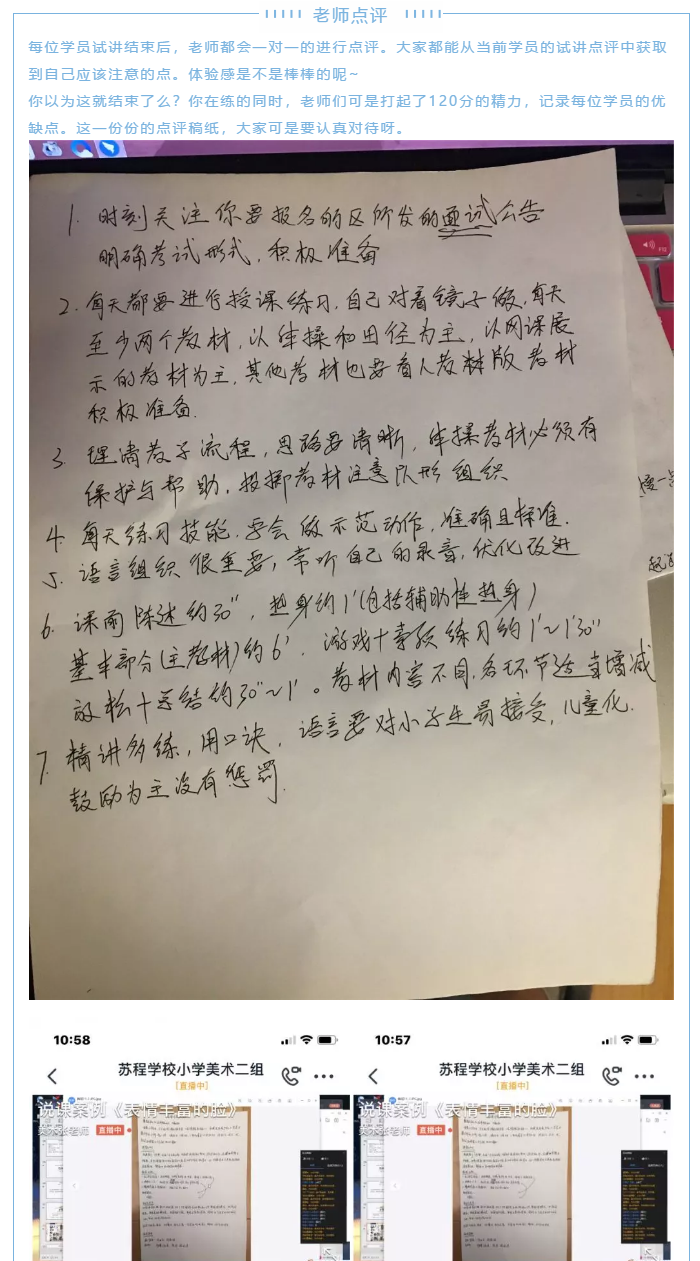 老师点评
每位学员试讲结束后，老师都会一对一的进行点评。大家都能从当前学员的试讲点评中获取
到自己应该注意的点。体验感是不是棒棒的呢~
你以为这就结束了么？你在练的同时，老师们可是打起了120分的精力，记录每位学员的优
缺点。这一份份的点评稿纸，大家可是要认真对待呀。
1. 时刻关注你要报名的区所发的面试公告
明确考试形式，积极准备
2. 每天都要进行授课练习，自己对着镜子做，每天
至少两个教材，以体操和田径为主，以网课展
示的教材为主，其他教材也要看人教版教材
积极准备.
3. 理清教学流程，思路要清晰，体操教材必须有
保护与帮助，投掷教材注意队形组织
4. 每天练习技能，要会做示范动作，准确且标准.
5. 语言组织很重要，常听自己的录音，优化改进
6. 课前陈述约30"，热身约1'(包括辅助性热身)
基本部分(主教材)约6'，游戏+素质练习约1'~1'30"
放松+总结约30"~1'。教材内容不同，各环节适当增减
7. 精讲多练，用口诀，语言要对小学生易接受，儿童化.
鼓励为主没有惩罚.
10:58
苏程学校小学美术二组
[直播中]
说课案例《表情丰富的脸》
直播中
10:57
苏程学校小学美术二组
[直播中]
说课案例《表情丰富的脸》
直播中